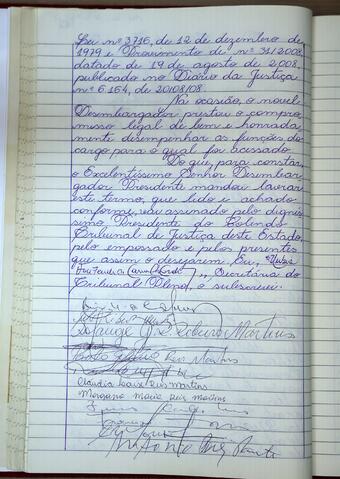 Lei nº 3716, de 12 de dezembro de
1979 e Provimento de nº 31/2008,
datado de 19 de agosto de 2008,
publicado no Diário da Justiça
nº 6.154, de 20/08/08.
Na ocasião, o novel
Desembargador prestou o compro
misso legal de bem e honrada
mente desempenhar as funções do
cargo para o qual foi acessado.
Do que, para constar,
o Excelentíssimo Senhor Desembar
gador Presidente mandou lavrar
este termo, que lido e achado
conforme, vai assinado pelo dignís
simo Presidente do Colendo
Tribunal de Justiça deste Estado,
pelo empossado e pelos presentes
que assim o desejarem. Eu,
Secretária do
Tribunal Pleno, o subscrevi.
Solange Ribeiro Martins
Reis Martins
Claudia Reis Martins
Morgana Maria Reis Martins
Antonio Reis